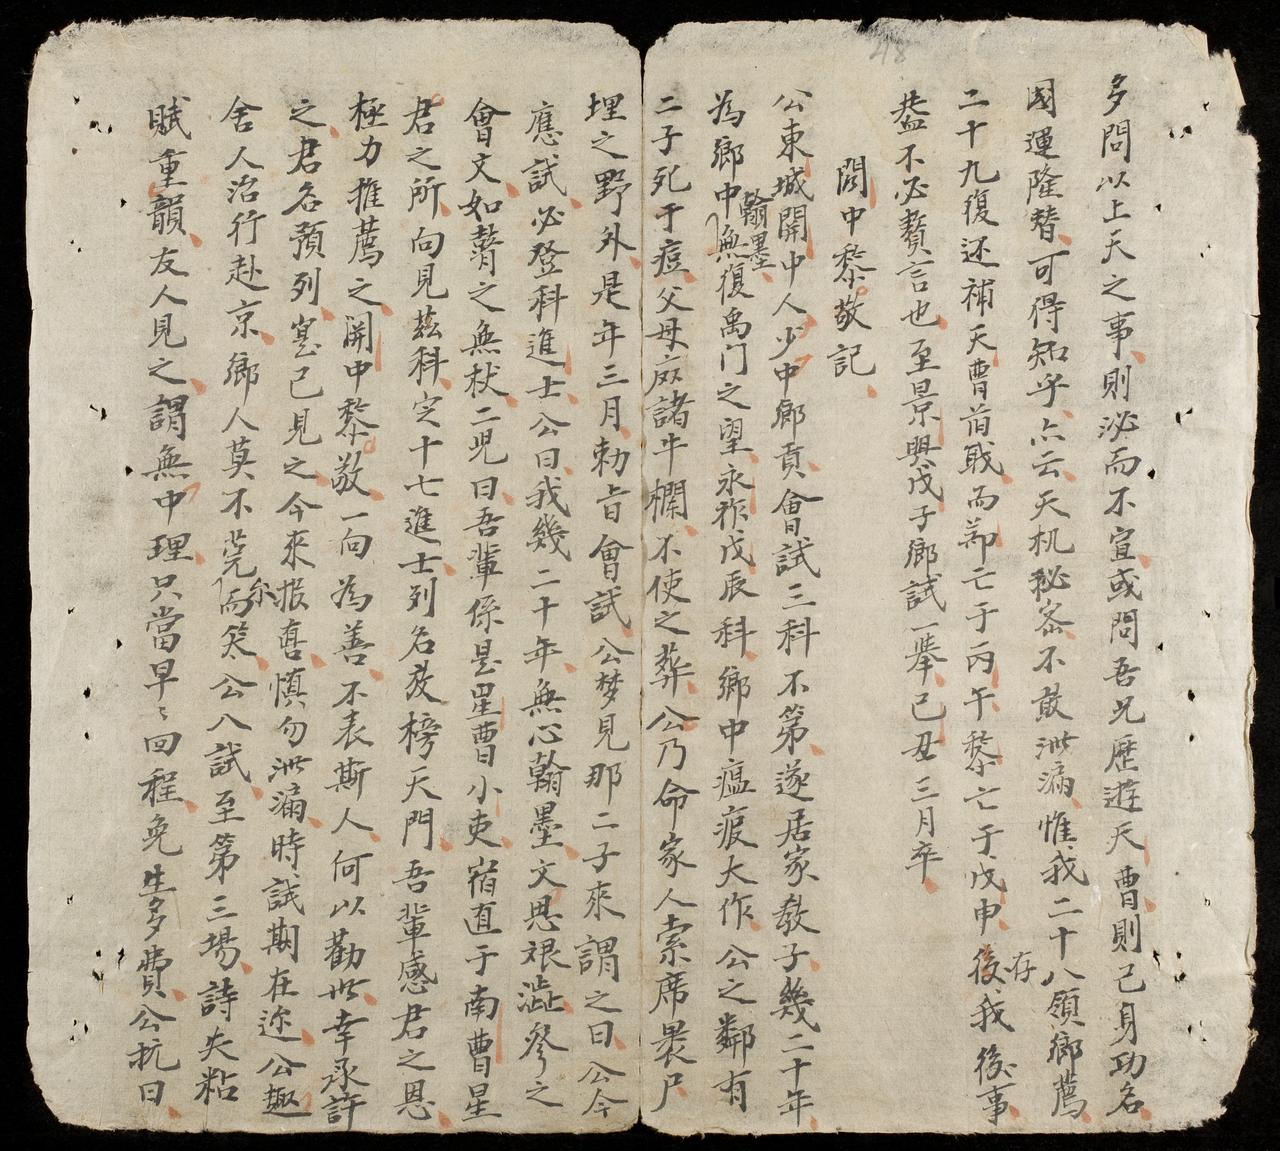 多問以上天之事則泌而不宣或問吾兄歷遊天曹則己身功名
國運隆替可得知乎亦云天机秘密不敢泄漏惟我二十八領鄉薦
二十九復还補天曹前職而節亡于丙午黎亡于戊申後我存後事
恭不必贅言也至景興戊子鄉試一舉己丑三月卒
開中黎敬記
公東城開中人少中鄉貢會試三科不第遂居家教子幾二十年
為鄉中翰墨無復禹门之望永祚戊辰科鄉中瘟疫大作公之鄰有
二子死于痘父母寄諸牛欄不使之葬公乃命家人索席裹尸
埋之野外是年三月勅旨會試公梦見那二子來謂之曰公今
應試必登科進士公曰我幾二十年無心翰墨文思艰澁參之
會文如瞽之無杖二児曰吾輩係是星曹小吏宿直于南曹星
君之所向見茲科定十七進士列名及榜天門吾輩感君之恩
極力推薦之開中黎敬一向為善不表斯人何以勸世幸承許
之君名預列寔已見之今來报喜慎勿泄漏時試期在迩公趣
舍人治行赴京鄉人莫不莞尔而笑公入試至第三場詩失粘
賦重韻友人見之謂無中理只當早〻回程免生多費公抗曰